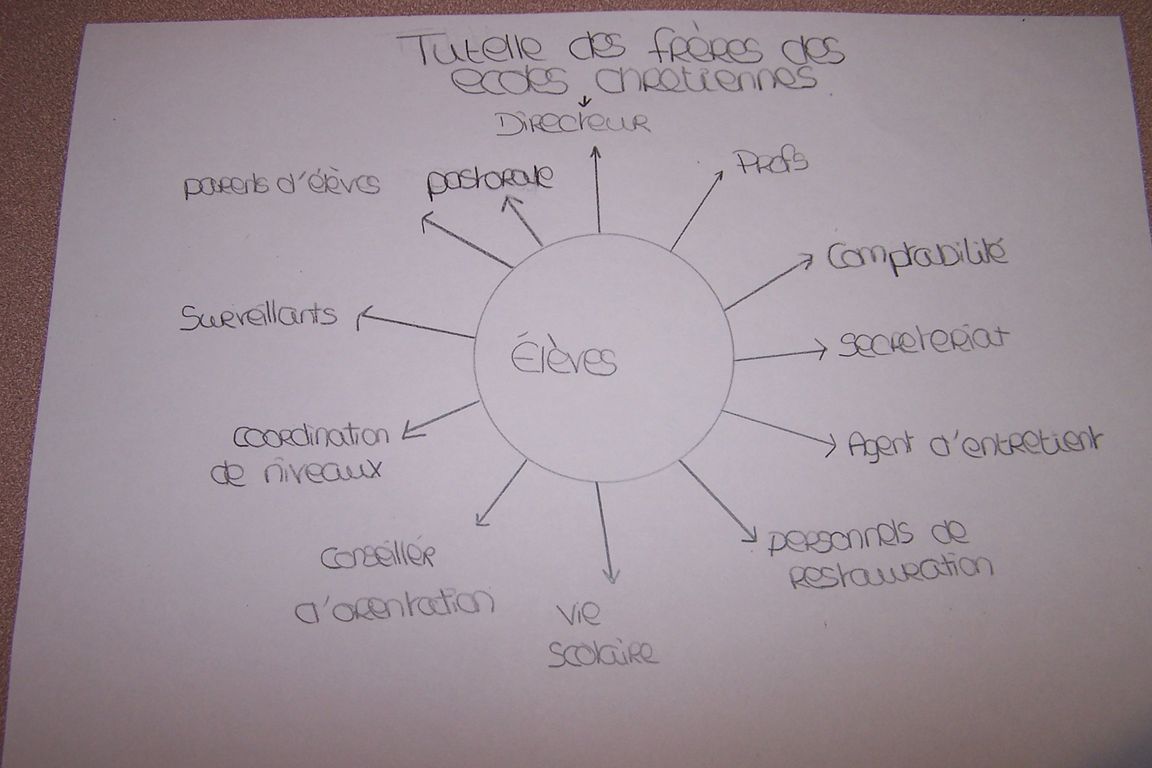 Tutelle des frères des
ecoles chretiennes
Directeur
Profs
pastorale
parents d'élèves
Comptabilité
Surveillants
Secreteriat
Élèves
Agent d'entretient
coordination
de niveaux
personnels de
restauration
Conseiller
d'orentation
Vie
scolaire